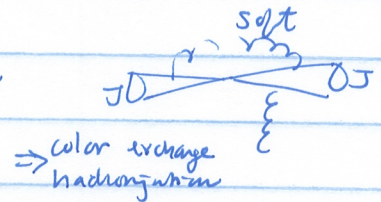 soft
J J
⇒ color exchange
hadronization